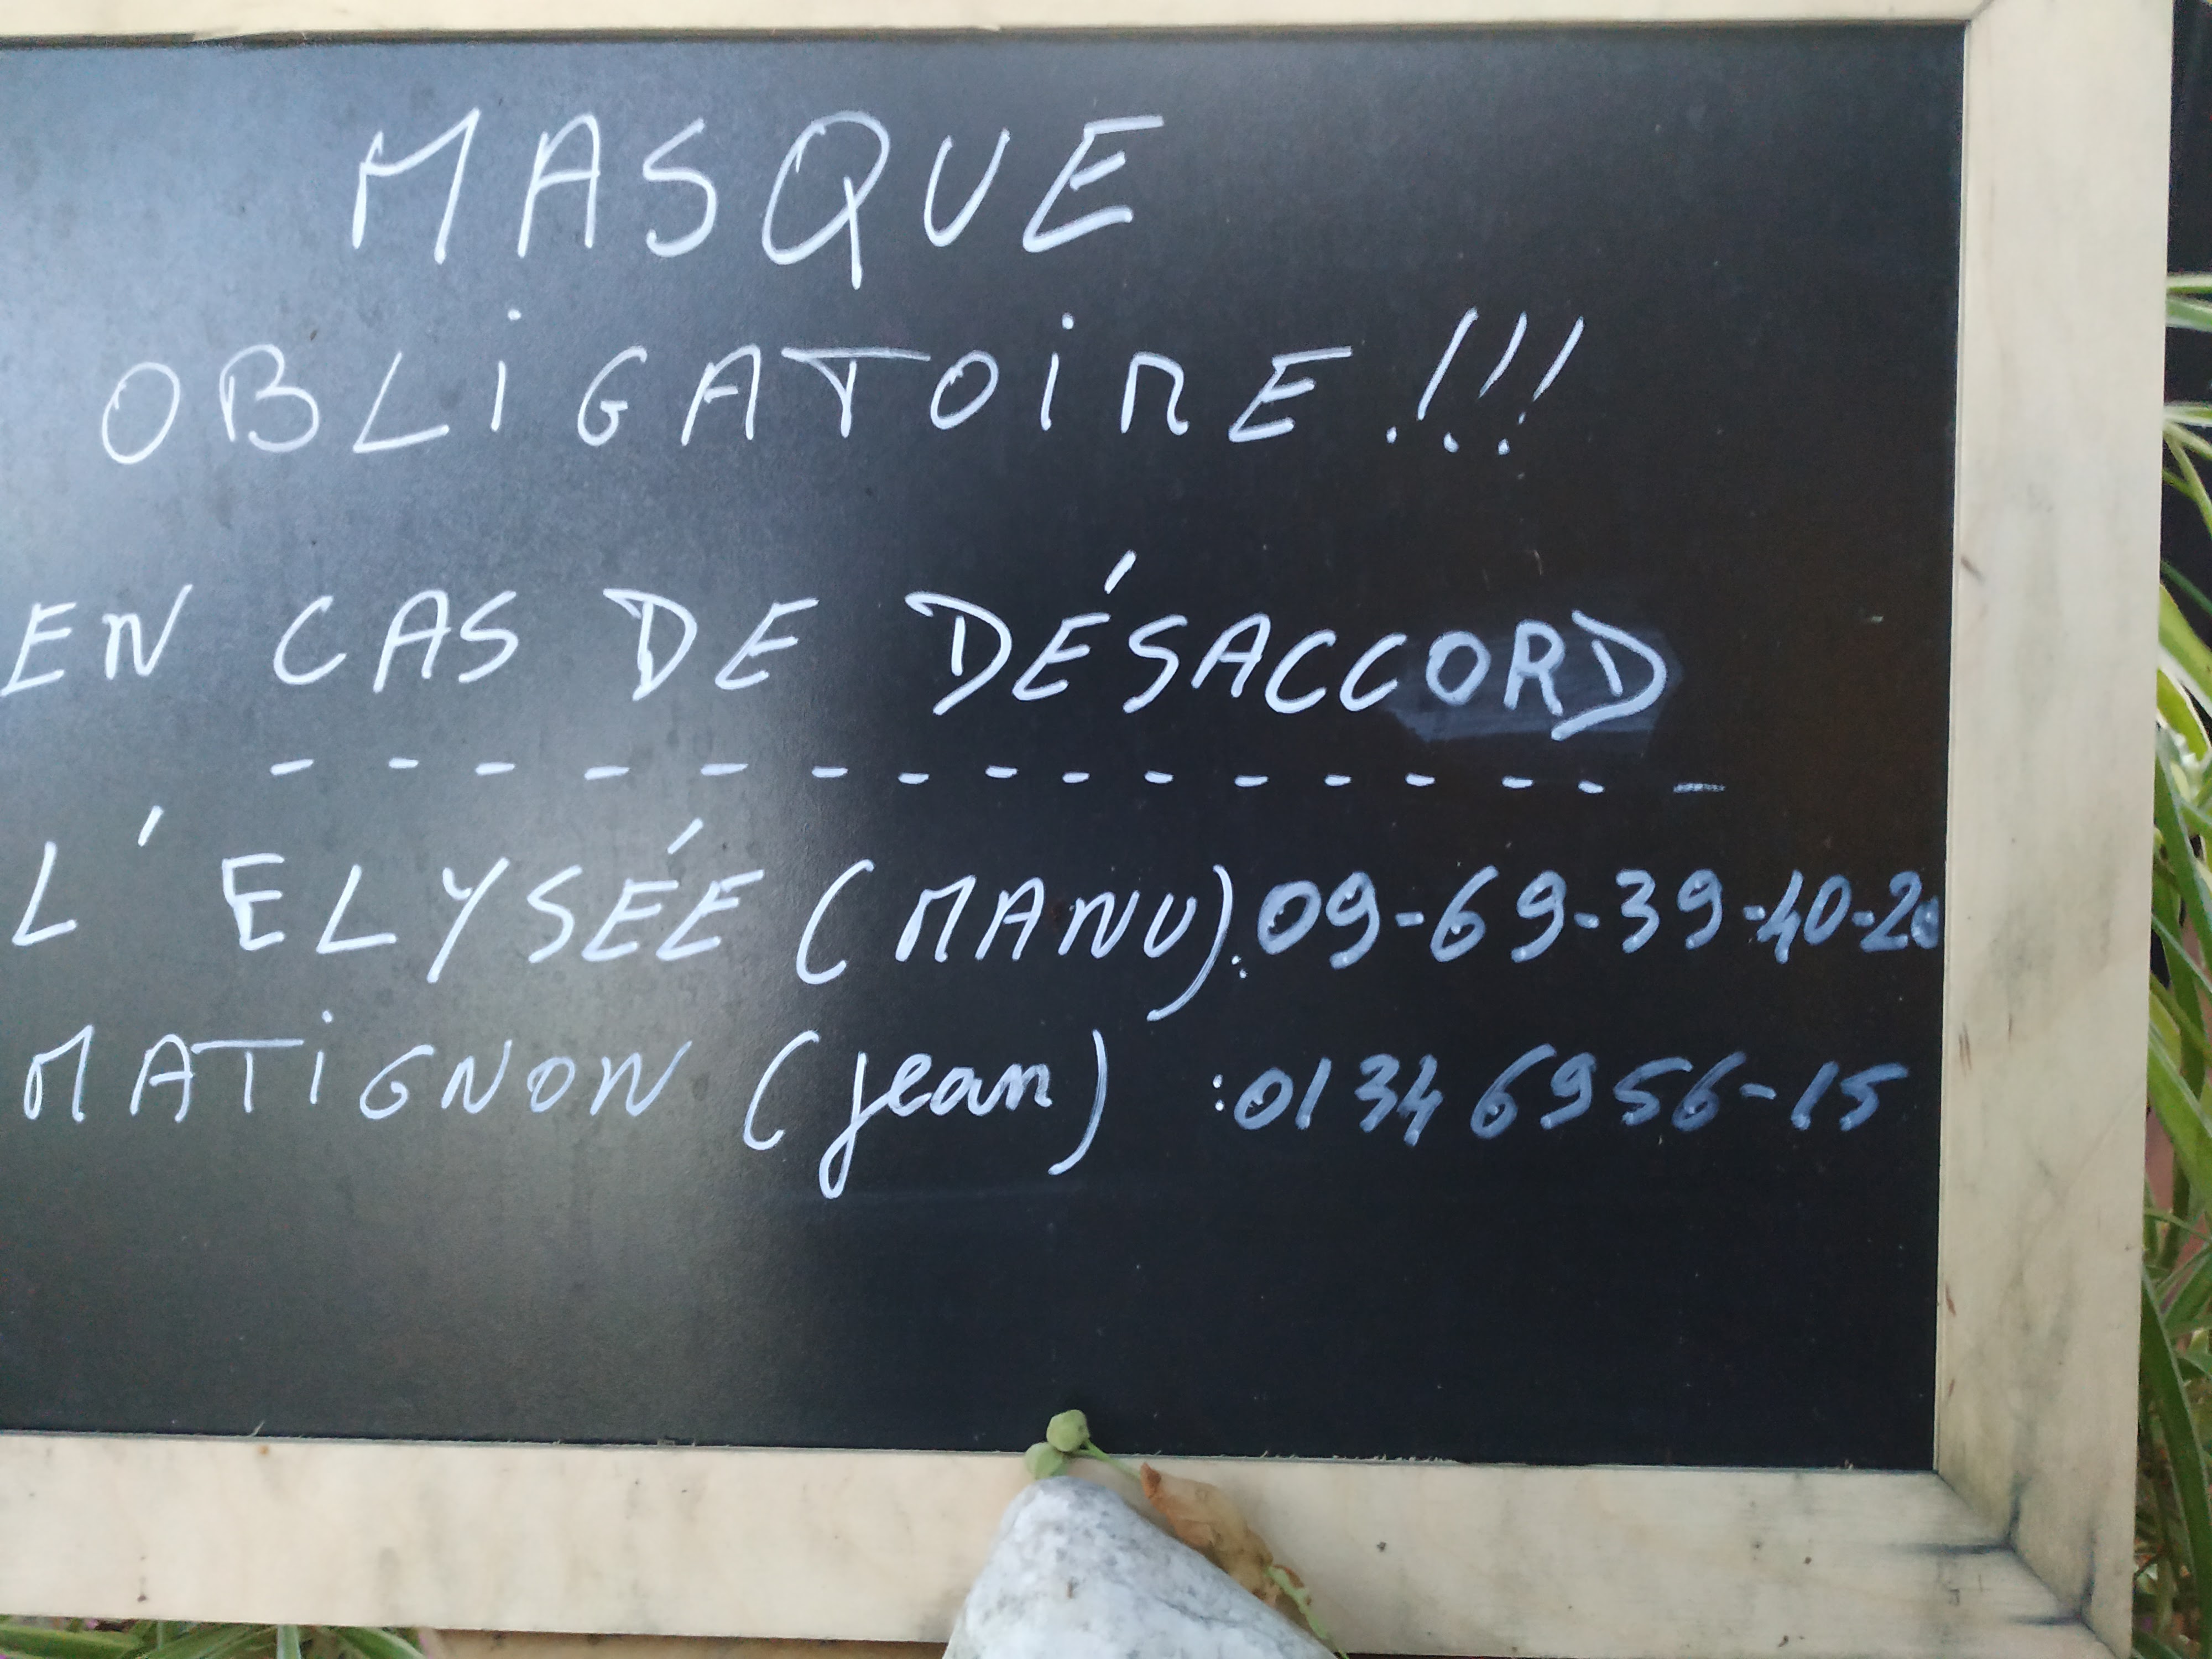 MASQUE
OBLIGATOIRE !!!
EN CAS DE DÉSACCORD
- - - - - - - - - - - - - - - -
L'ELYSÉE (MANU): 09-69-39-40-20
MATIGNON (jean) : 01 34 69 56-15